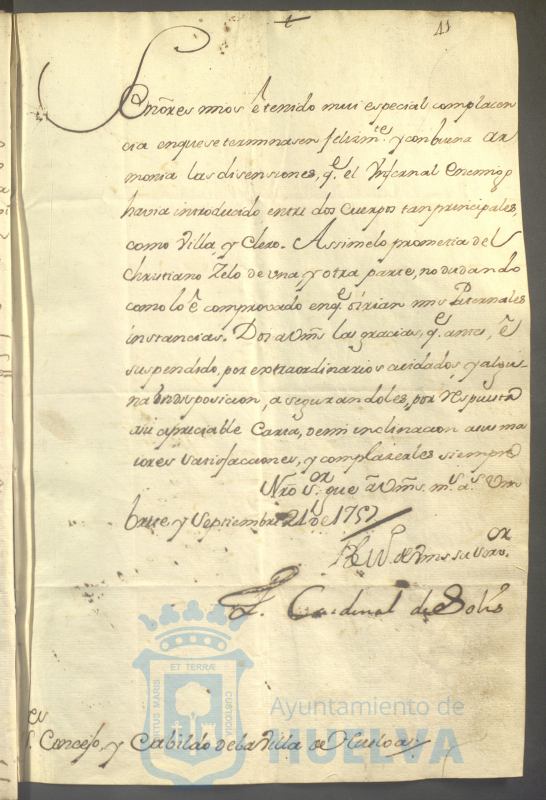 41
Señores mios e tenido mui especial complacen
cia en que se terminasen felizmte y con buena ar
monia las disensiones, qe el Ynfernal Enemigo
havia introducido entre dos Cuerpos tan principales,
como Villa, y Clero. Assi me lo prometia del
Christiano Zelo de una y otra parte, no dudando
como lo ê comprovado en qe oirian mis Paternales
instancias. Doi a Vms las gracias, qe antes, ê
suspendido, por extraordinarios cuidados, y algu
na indisposicion, asegurandoles, por respuesta
a su apreciable Carta, de mi inclinacion a sus ma
iores satisfacciones, y complazerles siempre
Nro Sor gue â Vms. ms as Um
brete y Septiembre 21 de 1757
de Vms su Sor
F. Cardenal de Solis
Concejo, y Cabildo de la Villa de Huelva
PORTUS MARIS
ET TERRÆ
CUSTODIA
Ayuntamiento de
HUELVA